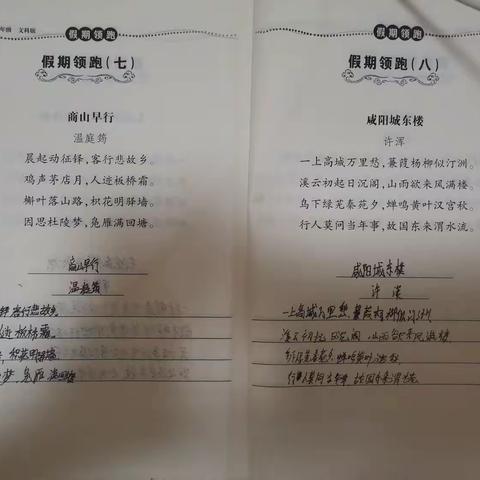 年级 文科版
假期领跑
假期领跑(七)
商山早行
温庭筠
晨起动征铎,客行悲故乡。
鸡声茅店月,人迹板桥霜。
槲叶落山路,枳花明驿墙。
因思杜陵梦,凫雁满回塘。
商山早行
温庭筠
客行悲故乡
迹板桥霜
枳花明驿墙
梦,凫雁满回塘
假期领跑
假期领跑(八)
咸阳城东楼
许浑
一上高城万里愁,蒹葭杨柳似汀洲。
溪云初起日沉阁,山雨欲来风满楼。
鸟下绿芜秦苑夕,蝉鸣黄叶汉宫秋。
行人莫问当年事,故国东来渭水流。
咸阳城东楼
许浑
一上高城万里愁 蒹葭杨柳似汀洲
溪云初起日沉阁 山雨欲来风满楼
行人莫问当年事 故国东来渭水流